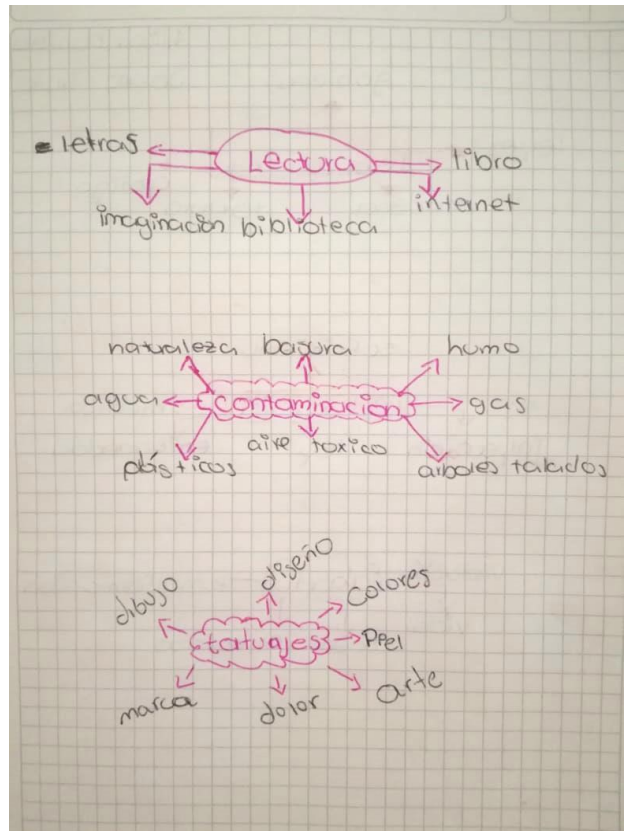 letras Lectura libro
imaginación biblioteca internet
naturaleza basura humo
agua contaminacion gas
plásticos aire toxico arboles talados
dibujo diseño colores
tatuajes Piel
marca dolor arte